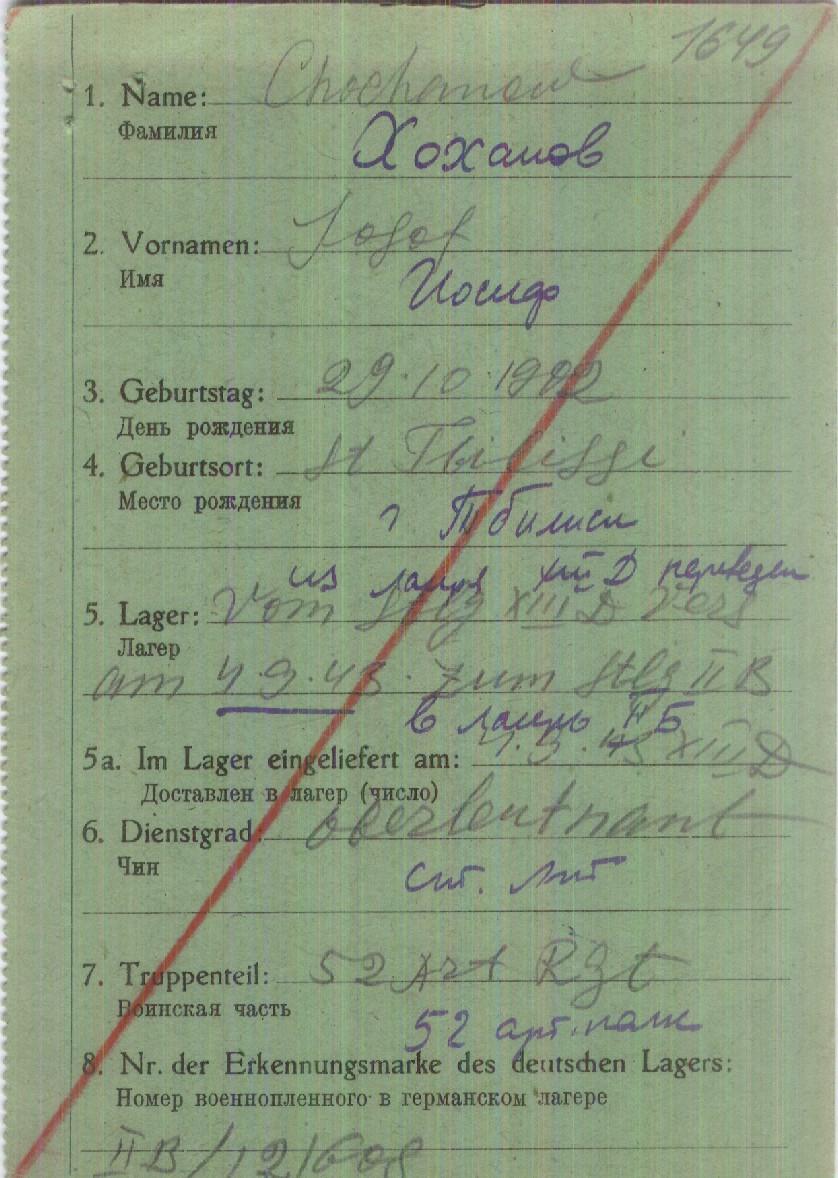 1649
1. Name: Chochanow
Фамилия
Хоханов
2. Vornamen: Josof
Имя
Иосиф
3. Geburtstag: 29.10.1902
День рождения
4. Geburtsort: St Tbilissi
Место рождения
г Тбилиси
из лагеря XIII D переведен
5. Lager: Vom Stlg XIII D vers
Лагер
am 4.9.43. zum Stlg II B
в лагерь II Б
5a. Im Lager eingeliefert am: 4.9.43 XIII D
Доставлен в лагер (число)
6. Dienstgrad: oberleutnant
Чин
ст. л-нт
7. Truppenteil: 52 Art Rgt
Воинская часть
52 арт. полк
8. Nr. der Erkennungsmarke des deutschen Lagers:
Номер военнопленного в германском лагере
II B /